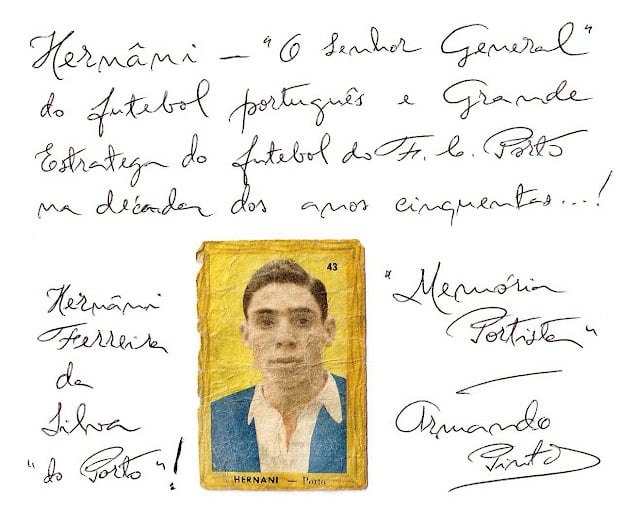 Hernâni — "O Senhor General"
do futebol português e Grande
Estratega do futebol do F. C. Porto
na década dos anos cinquentas...!
Hernâni
Ferreira
da
Silva
"do Porto"!
43
HERNANI — Porto
"Memória
Portista"
Armando
Pinto